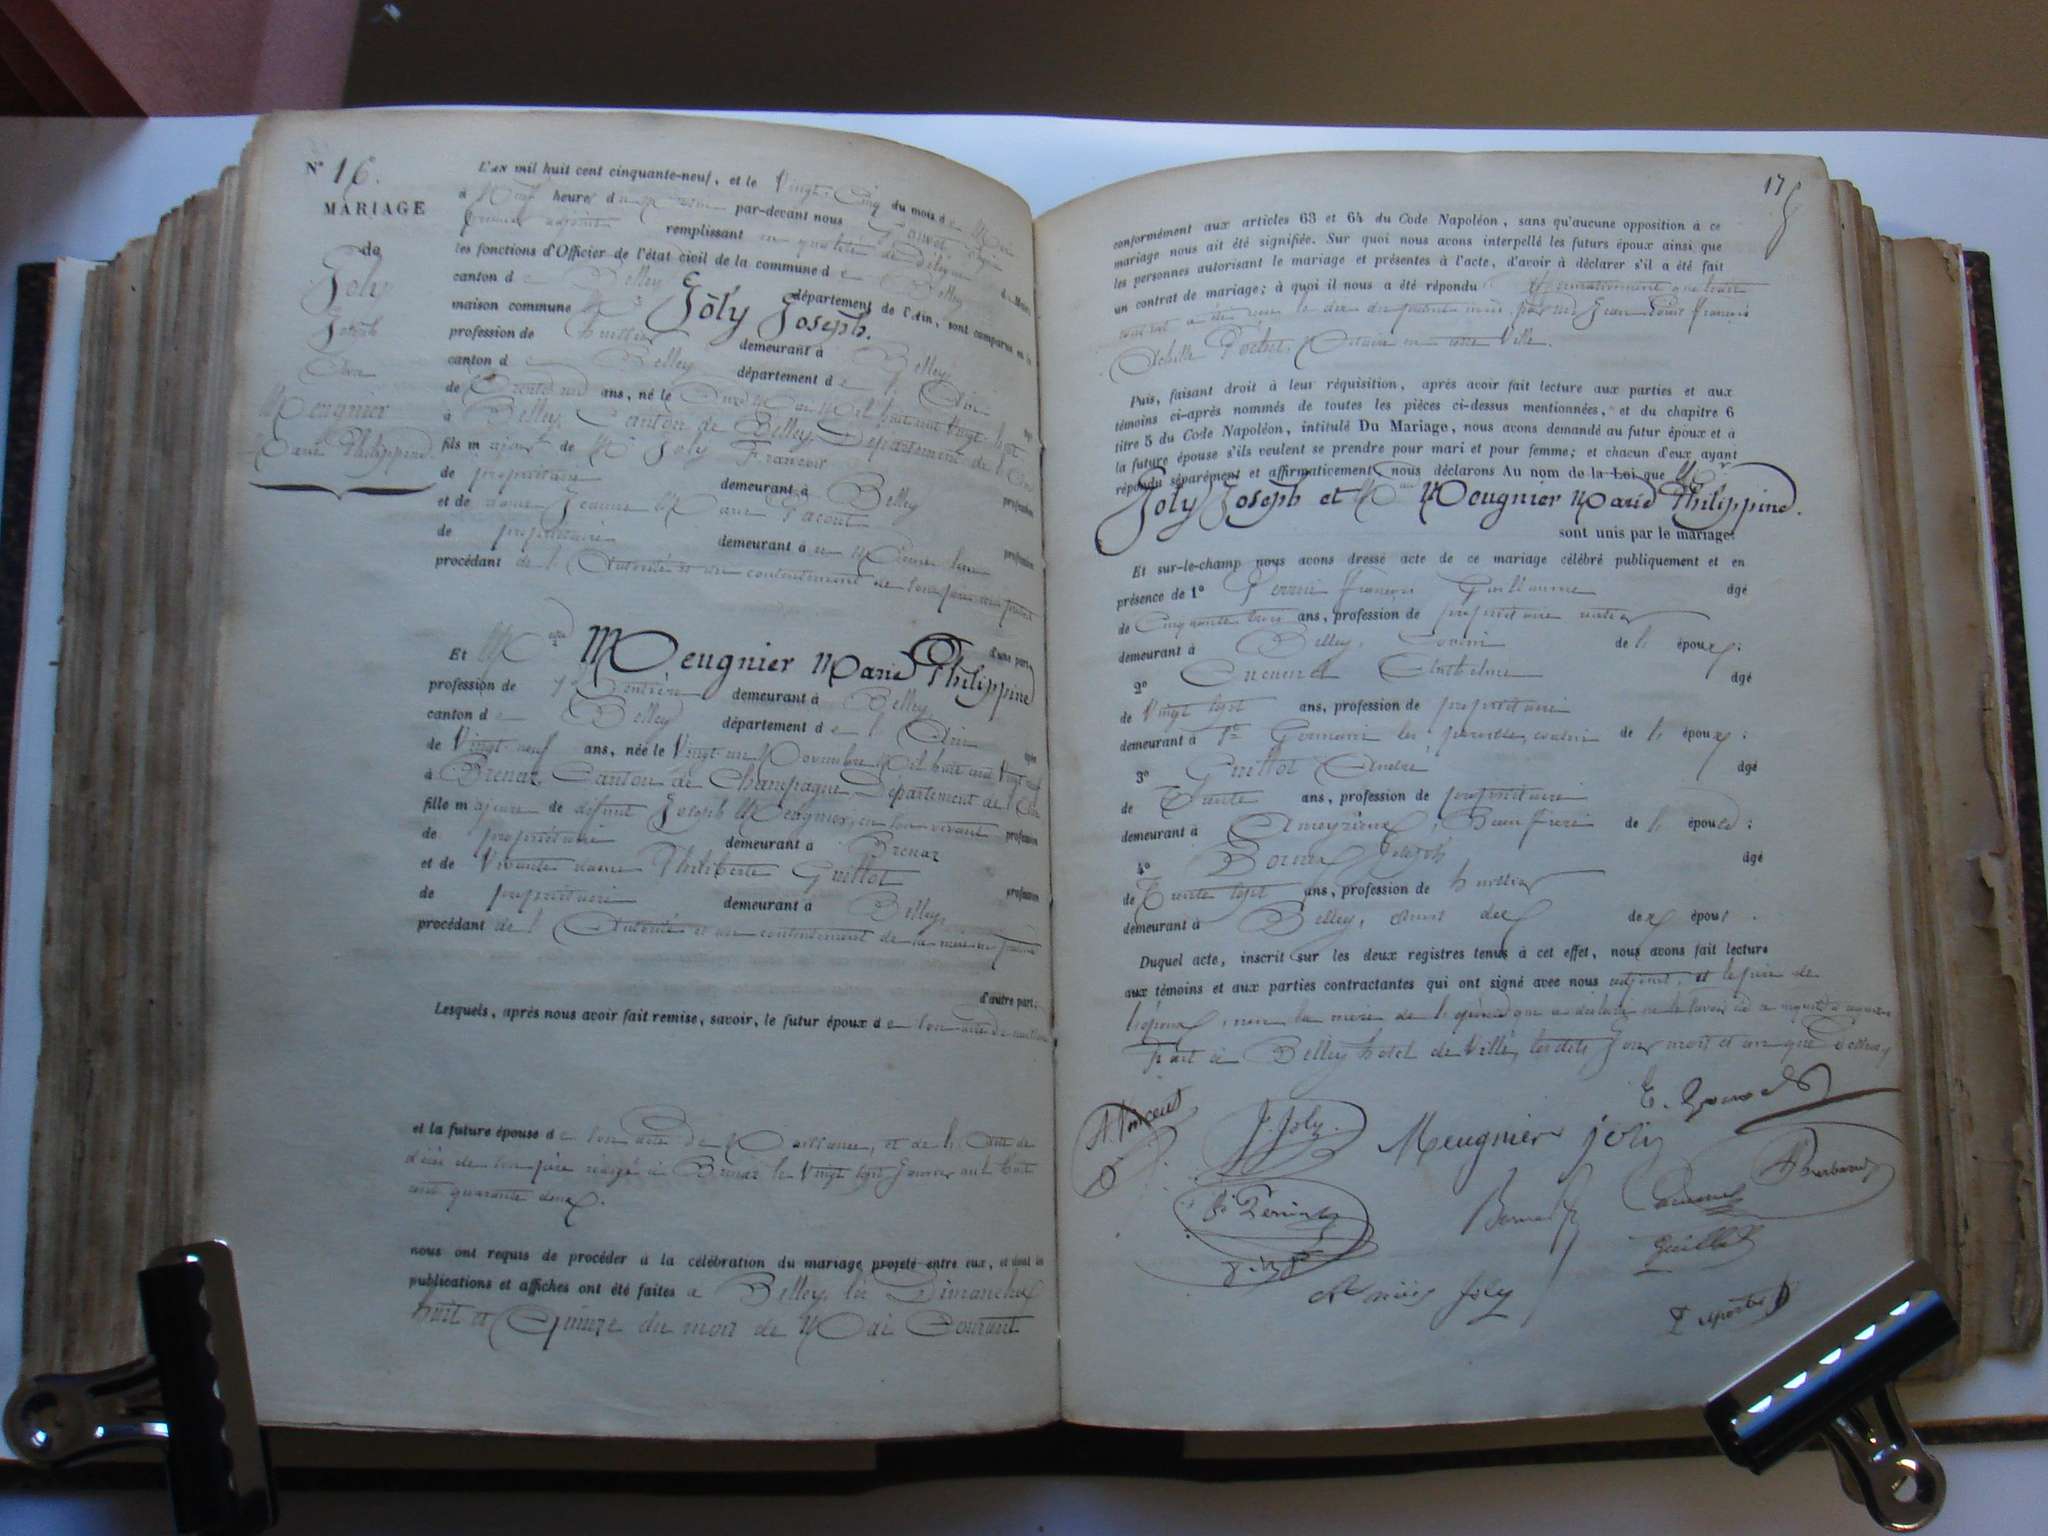 N° 16.
MARIAGE
de
Joly
Joseph
Avec
Meugnier
Marie Philippine
L'an mil huit cent cinquante-neuf, et le Vingt-Cinq du mois de Mai
à Neuf heures du par-devant nous
premier adjoint remplissant en qualité de délégué du Maire
les fonctions d'Officier de l'état civil de la commune de Belley
canton de Belley département de l'Ain, sont comparus en la
maison commune Mr Joly Joseph.
profession de huissier demeurant à Belley
canton de Belley département de l'Ain
de ans, né le Mil huit cent Vingt-sept
à Belley, Canton de Belley, Département de l'Ain
fils majeur de Mr Joly François profession
de propriétaire demeurant à Belley
et de dame Jeanne Marie profession
de propriétaire demeurant à
procédant de l'Autorité et du consentement de son père ici présent
d'une part,
Et Melle Meugnier Marie Philippine
profession de demeurant à Belley
canton de Belley département de l'Ain âgée
de Vingt-neuf ans, née le Vingt un Novembre Mil huit cent Vingt neuf
à Brenaz Canton de Champagne, Département de l'Ain
fille majeure de défunt Joseph Meugnier, en son vivant profession
de propriétaire demeurant à Brenaz
et de Vivante dame Philiberte Guillot profession
de propriétaire demeurant à Belley,
procédant de l'Autorité et du consentement de sa mère ici présente
d'autre part;
Lesquels, après nous avoir fait remise, savoir, le futur époux de son acte de naissance
et la future épouse de son acte de Naissance, et de l'acte de
décès de son père rédigé à Brenaz le Vingt sept Janvier mil huit
cent quarante deux.
nous ont requis de procéder à la célébration du mariage projeté entre eux, et dont les
publications et affiches ont été faites à Belley les Dimanches
huit et Quinze du mois de Mai Courant
17
conformément aux articles 63 et 64 du Code Napoléon, sans qu'aucune opposition à ce
mariage nous ait été signifiée. Sur quoi nous avons interpellé les futurs époux ainsi que
les personnes autorisant le mariage et présentes à l'acte, d'avoir à déclarer s'il a été fait
un contrat de mariage; à quoi il nous a été répondu Affirmativement que
contrat a été reçu le dix du présent mois par Me Jean Louis François
Achille Pochet, Notaire en cette Ville.
Puis, faisant droit à leur réquisition, après avoir fait lecture aux parties et aux
témoins ci-après nommés de toutes les pièces ci-dessus mentionnées, et du chapitre 6
titre 5 du Code Napoléon, intitulé Du Mariage, nous avons demandé au futur époux et à
la future épouse s'ils veulent se prendre pour mari et pour femme; et chacun d'eux ayant
répondu séparément et affirmativement, nous déclarons Au nom de la Loi que Mr
Joly Joseph et Melle Meugnier Marie Philippine.
sont unis par le mariage.
Et sur-le-champ nous avons dressé acte de ce mariage célébré publiquement et en
présence de 1° François Guillaume âgé
de Cinquante trois ans, profession de propriétaire
demeurant à Belley, cousin de l'époux;
2° Anthelme âgé
de Vingt sept ans, profession de propriétaire
demeurant à St Germain les paroisses, cousin de l'époux;
3° Guillot André âgé
de Trente ans, profession de propriétaire
demeurant à Ameyzieux, Beau frère de l'épouse;
4° Joseph âgé
de Trente sept ans, profession de huissier
demeurant à Belley, ami des époux.
Duquel acte, inscrit sur les deux registres tenus à cet effet, nous avons fait lecture
aux témoins et aux parties contractantes qui ont signé avec nous adjoint, et le père de
l'époux, non la mère de l'épouse que a déclaré ne le savoir de ce enquise et requise
Fait à Belley hôtel de Ville, lesdits Jour mois et an que dessus,
J. Joly.
Meugnier joly
Guillot
joly